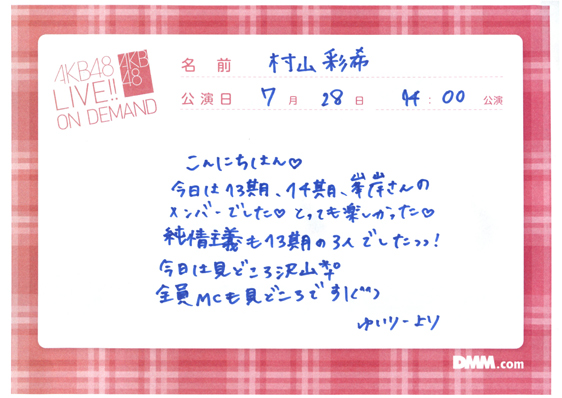 AKB48
LIVE!!
ON DEMAND
AKB
48
名前 村山彩希
公演日 7月 28日 14:00 公演
こんにちはん♡
今日は13期、14期、峯岸さんの
メンバーでした♡とっても楽しかった♡
純情主義も13期の3人でしたっっ!
今日は見どころ沢山
全員MCも見どころです!(^^)
ゆいりーより
DMM.com